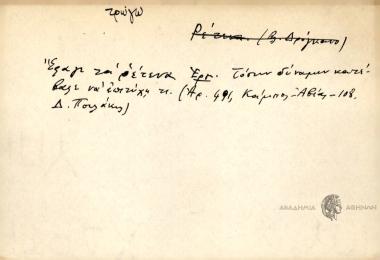 τρώγω
Ρέτενα. (Β. Δρίμανο)
"Έφαγε τα ρέτενα Ερμ. Τόσην δύναμιν κατέ-
βαλε να επιτύχη τι. (Αρ. 491, Κάμπος-Αβίας-108.
Δ. Πουλάκης)
ΑΚΑΔΗΜΙΑ ΑΘΗΝΩΝ